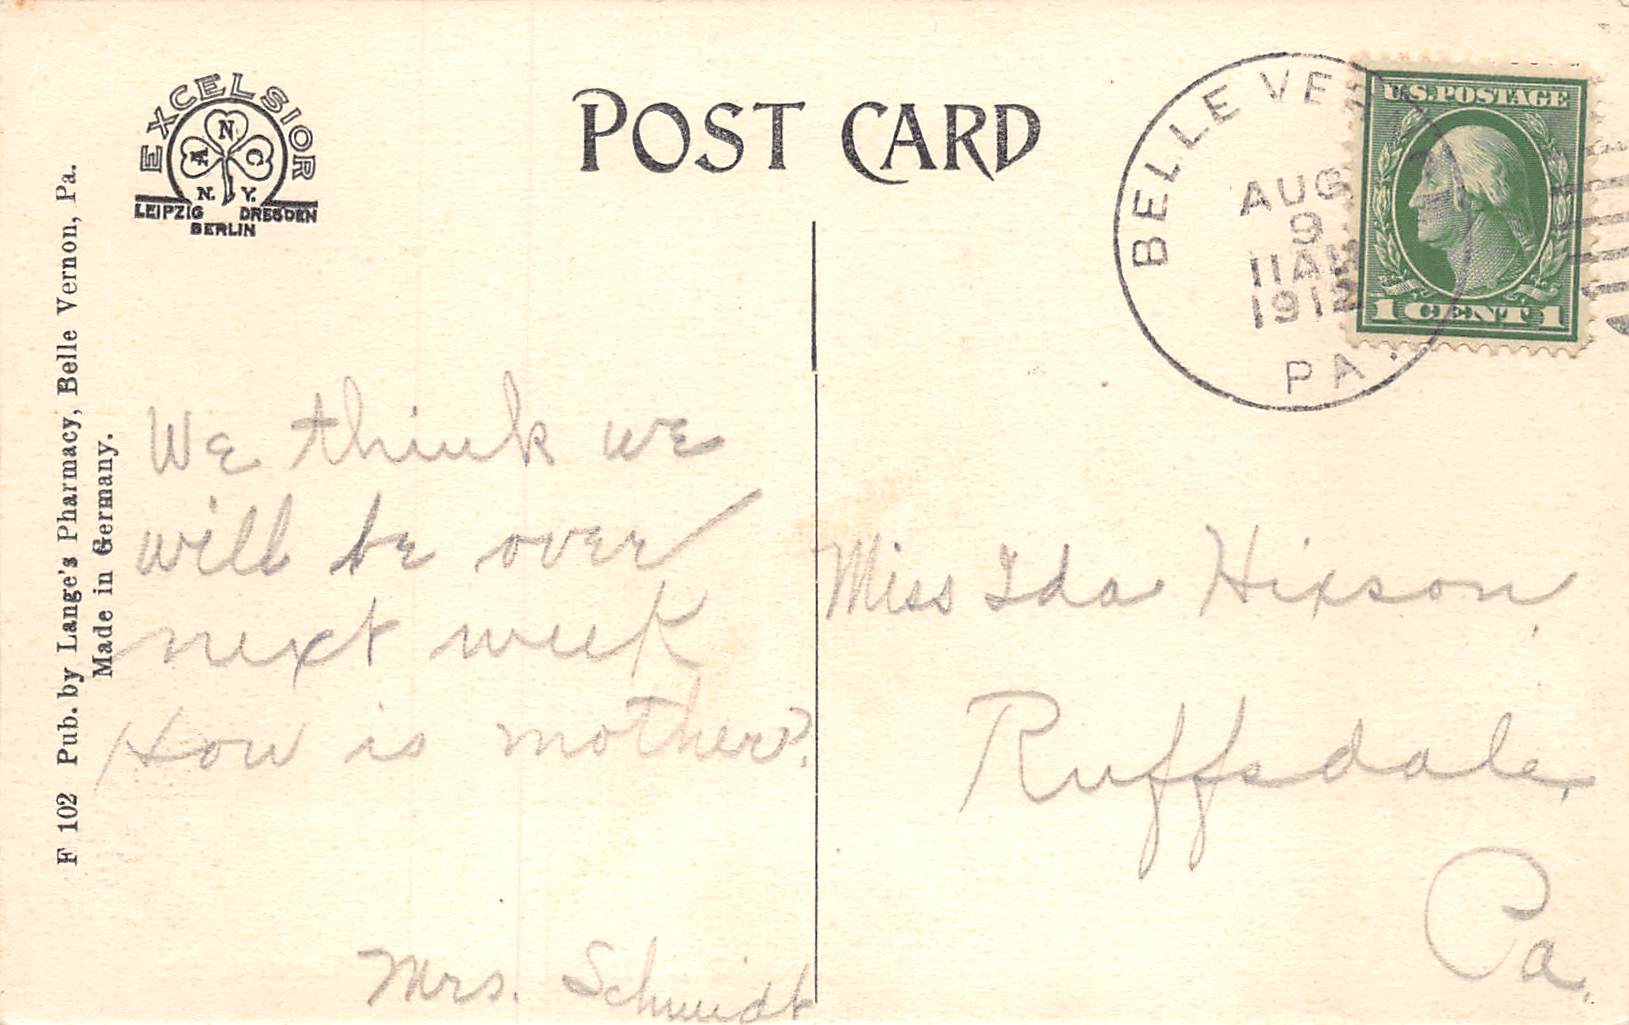 EXCELSIOR
A N C
N. Y.
LEIPZIG DRESDEN
BERLIN
POST CARD
BELLE VER
AUG
9
11 AM
1912
PA.
U.S. POSTAGE
1 CENT 1
F 102 Pub. by Lange's Pharmacy, Belle Vernon, Pa.
Made in Germany.
We think we
will be over
next week
How is mother?
Mrs. Schmidt
Miss Ida Hixson,
Ruffsdale,
Pa.